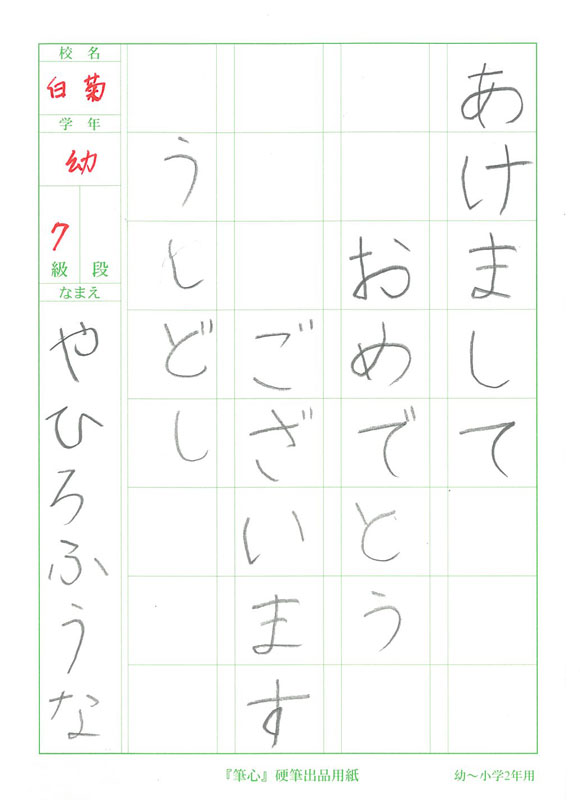 あけまして
おめでとう
ございます
うしどし
校名
白菊
学年
幼
7
級 段
なまえ
やひろふうな
『筆心』硬筆出品用紙
幼〜小学2年用